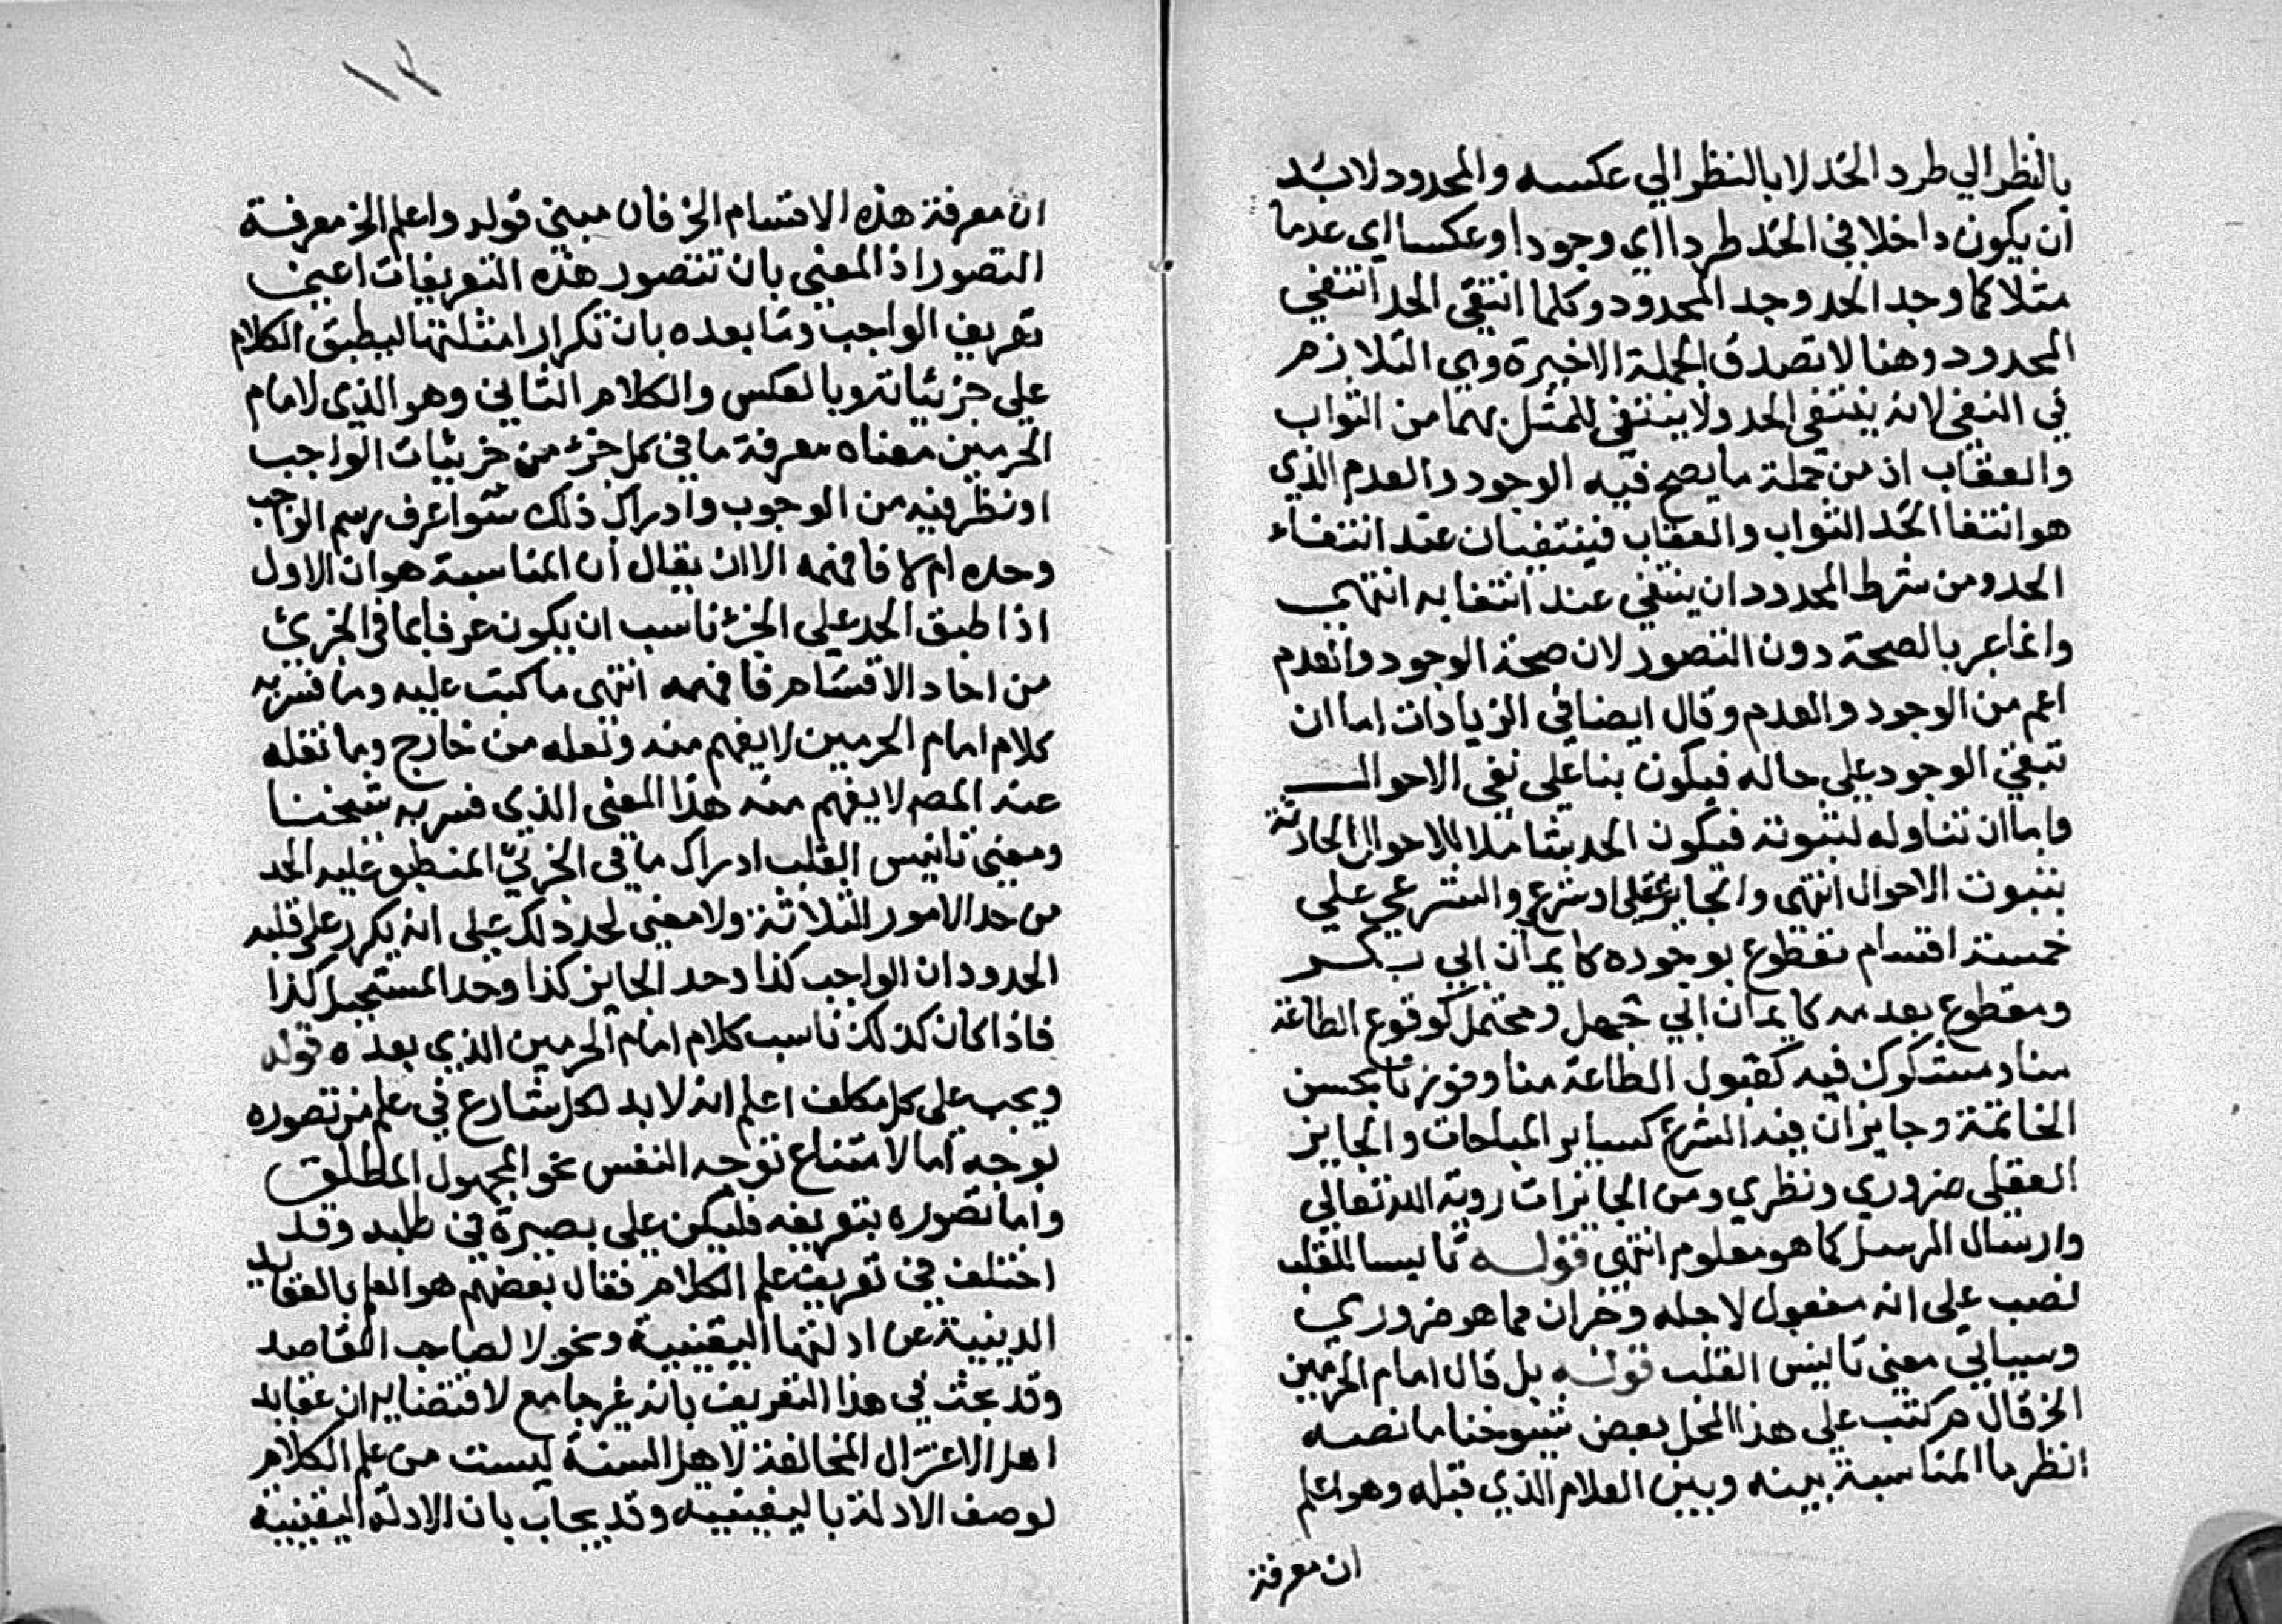 بالنظر الي طرد الحد لا بالنظر الي عكسه والمحدود لابد
ان يكون داخلا في الحد طردا اي وجودا وعكسا اي عدما
مثلا كما وجد الحد وجد المحدود وكلما انتفي الحد انتفي
المحدود وهنا لا تصدق الجملة الاخيرة وهي التلازم
في النفي لانه ينتفي الحد ولا ينتفي للمثل بهما من الثواب
والعقاب اذ من جملة ما يصح فيه الوجود والعدم الذي
هو انتفا الحد الثواب والعقاب فينتفيان عند انتفاء
الحد ومن شرط المحدود ان ينتفي عند انتفايه انتهي
وانما عبر بالصحة دون التصور لان صحة الوجود والعدم
اعم من الوجود والعدم وقال ايضا في الزيادات اما ان
تبقي الوجود علي حاله فيكون بنا علي نفي الاحوال
واما ان تتاوله لثبوته فيكون الحد شاملا للاحوال الحادثة
بثبوت الاحوال انتهي والجايز عقلي وشرعي والشرعي علي
خمسة اقسام مقطوع بوجوده كايمان ابي بكر
ومقطوع بعدمه كايمان ابي جهل ومحتمل كوقوع الطاعة
منا ومشكوك فيه كقبول الطاعة منا وفوزنا بحسن
الخاتمة وجايز ان فيه الشرع كساير المباحات والجايز
العقلي ضروري ونظري ومن الجايزات روية الله تعالي
وارسال الرسل كما هو معلوم انتهي قوله تانيسا للقلب
نصب علي انه مفعول لاجله وخران مما هو ضروري
وسياتي معني تانيس القلب قوله بل قال امام الحرمين
الخ قال م ركتب علي هذا المحل بعض شيوخنا ما نصه
انظر ما المناسبة بينه وبين الكلام الذي قبله وهو اعلم
ان معرفة
١٢
ان معرفة هذه الاقسام الخ فان مبني قوله واعلم الخ معرفة
التصور اذ المعني بان تتصور هذه التعريفات اعني
تعريف الواجب وما بعده بان تكرار امثلتها لبطبق الكلام
علي جزئياته وبالعكس والكلام الثاني وهو الذي لامام
الحرمين معناه معرفة ما في كل جزء من جزئيات الواجب
او نظر فيه من الوجوب وادراك ذلك سوا عرف رسم الواجب
وحده ام لا فافهمه الا ان يقال ان المناسبة هو ان الاول
اذا طبق الحد علي الجزء ناسب ان يكون عرفا بما في الجزئ
من احاد الاقسام فافهمه انتهي ما كتب عليه وما فسر به
كلام امام الحرمين لا يفهم منه ونعله من خارج وما نقله
عنه المصـ لا يفهم منه هذا المعني الذي فسر به شيخنا
ومعني تانيس القلب ادراك ما في الجزئي المنطبق عليه الحد
من حد الامور الثلاثة ولا معني لحد ذلك علي انه يكرر علي قلبه
الحدود ان الواجب كذا وحد الجايز كذا وحد المستحيل كذا
فاذا كان كذلك ناسب كلام امام الحرمين الذي بعده قوله
ويجب علي كل مكلف اعلم انه لابد لكل شارع في علم من تصوره
بوجه اما لامتناع توجه النفس نحو المجهول المطلق
واما تصوره بتعريفه فليكن علي بصيرة في طلبه وقد
اختلف في تعريف علم الكلام فقال بعضهم هو العلم بالعقايد
الدينية عن ادلتها اليقينية ونحوه لصاحب المقاصد
وقد بحث في هذا التعريف بانه غير جامع لاقتضايه ان عقايد
اهل الاعتزال المخالفة لاهل السنة ليست من علم الكلام
لوصف الادلة باليقينية وقد يجاب بان الادلة اليقينية